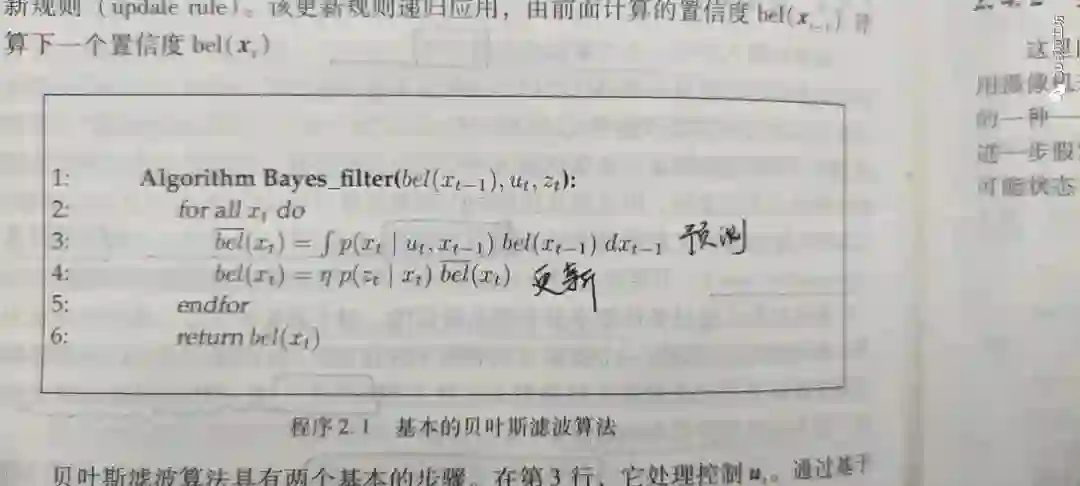 新规则（update rule）。该更新规则递归应用，由前面计算的置信度 bel(xₜ₋₁) 计
算下一个置信度 bel(xₜ)
1: Algorithm Bayes_filter(bel(xₜ₋₁), uₜ, zₜ):
2: for all xₜ do
3: b̅e̅l̅(xₜ) = ∫ p(xₜ | uₜ, xₜ₋₁) bel(xₜ₋₁) dxₜ₋₁ 预测
4: bel(xₜ) = η p(zₜ | xₜ) b̅e̅l̅(xₜ) 更新
5: endfor
6: return bel(xₜ)
程序 2.1 基本的贝叶斯滤波算法
贝叶斯滤波算法具有两个基本的步骤。在第 3 行，它处理控制 uₜ。通过基于
这里
用摄像机
的一种一
进一步假
可能状态